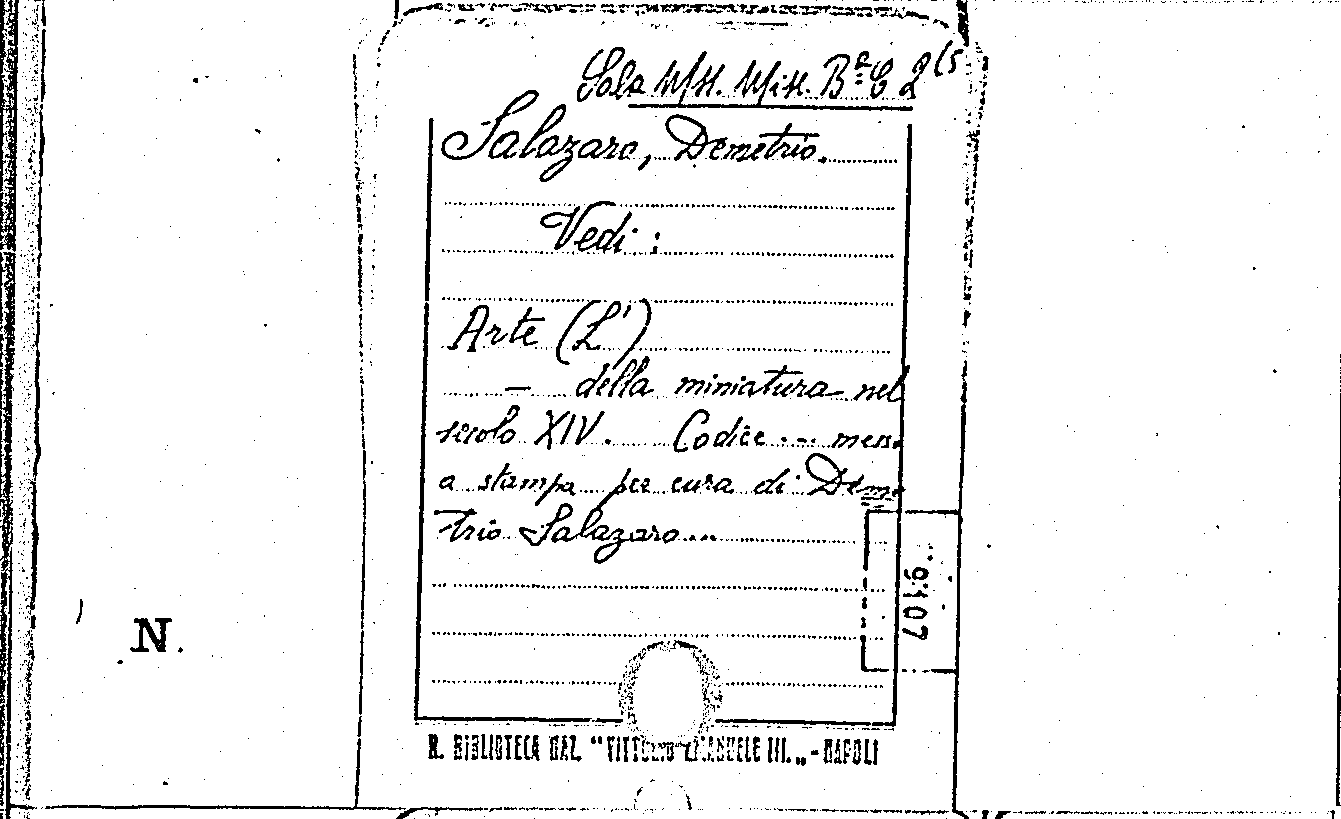 Sala Mss. Miss. Bª C 2(5
Salazaro, Demetrio.
Vedi :
Arte (L')
— della miniatura nel
secolo XIV. Codice ... messo
a stampa per cura di Deme
trio Salazaro...
9107
N.
R. BIBLIOTECA NAZ. "VITTORIO EMANUELE III.„ - NAPOLI